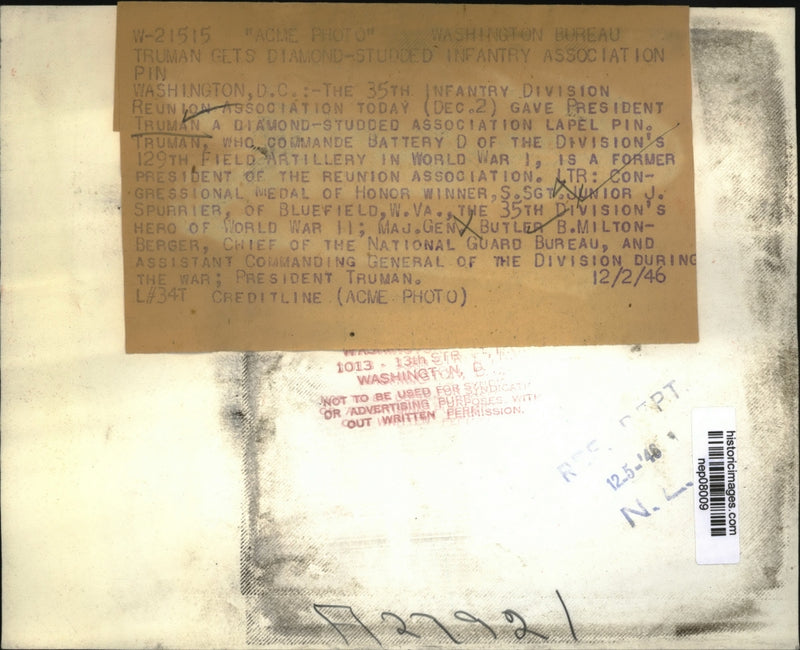 W-21515 "ACME PHOTO" WASHINGTON BUREAU
TRUMAN GETS DIAMOND-STUDDED INFANTRY ASSOCIATION
PIN
WASHINGTON, D.C.:-THE 35TH INFANTRY DIVISION
REUNION ASSOCIATION TODAY (DEC.2) GAVE PRESIDENT
TRUMAN A DIAMOND-STUDDED ASSOCIATION LAPEL PIN.
TRUMAN, WHO COMMANDE BATTERY D OF THE DIVISION'S
129TH FIELD ARTILLERY IN WORLD WAR I, IS A FORMER
PRESIDENT OF THE REUNION ASSOCIATION. LTR: CON-
GRESSIONAL MEDAL OF HONOR WINNER, S.SGT. JUNIOR J.
SPURRIER, OF BLUEFIELD, W.VA., THE 35TH DIVISION'S
HERO OF WORLD WAR II; MAJ.GEN. BUTLER B.MILTON-
BERGER, CHIEF OF THE NATIONAL GUARD BUREAU, AND
ASSISTANT COMMANDING GENERAL OF THE DIVISION DURING
THE WAR; PRESIDENT TRUMAN. 12/2/46
L#34T CREDITLINE (ACME PHOTO)
1013 - 13th STR
WASHINGTON, D.
NOT TO BE USED FOR SYNDICATI
OR ADVERTISING PURPOSES, WITH
OUT WRITTEN PERMISSION.
DEPT
12-5-'46
N.
historicimages.com
nep08009